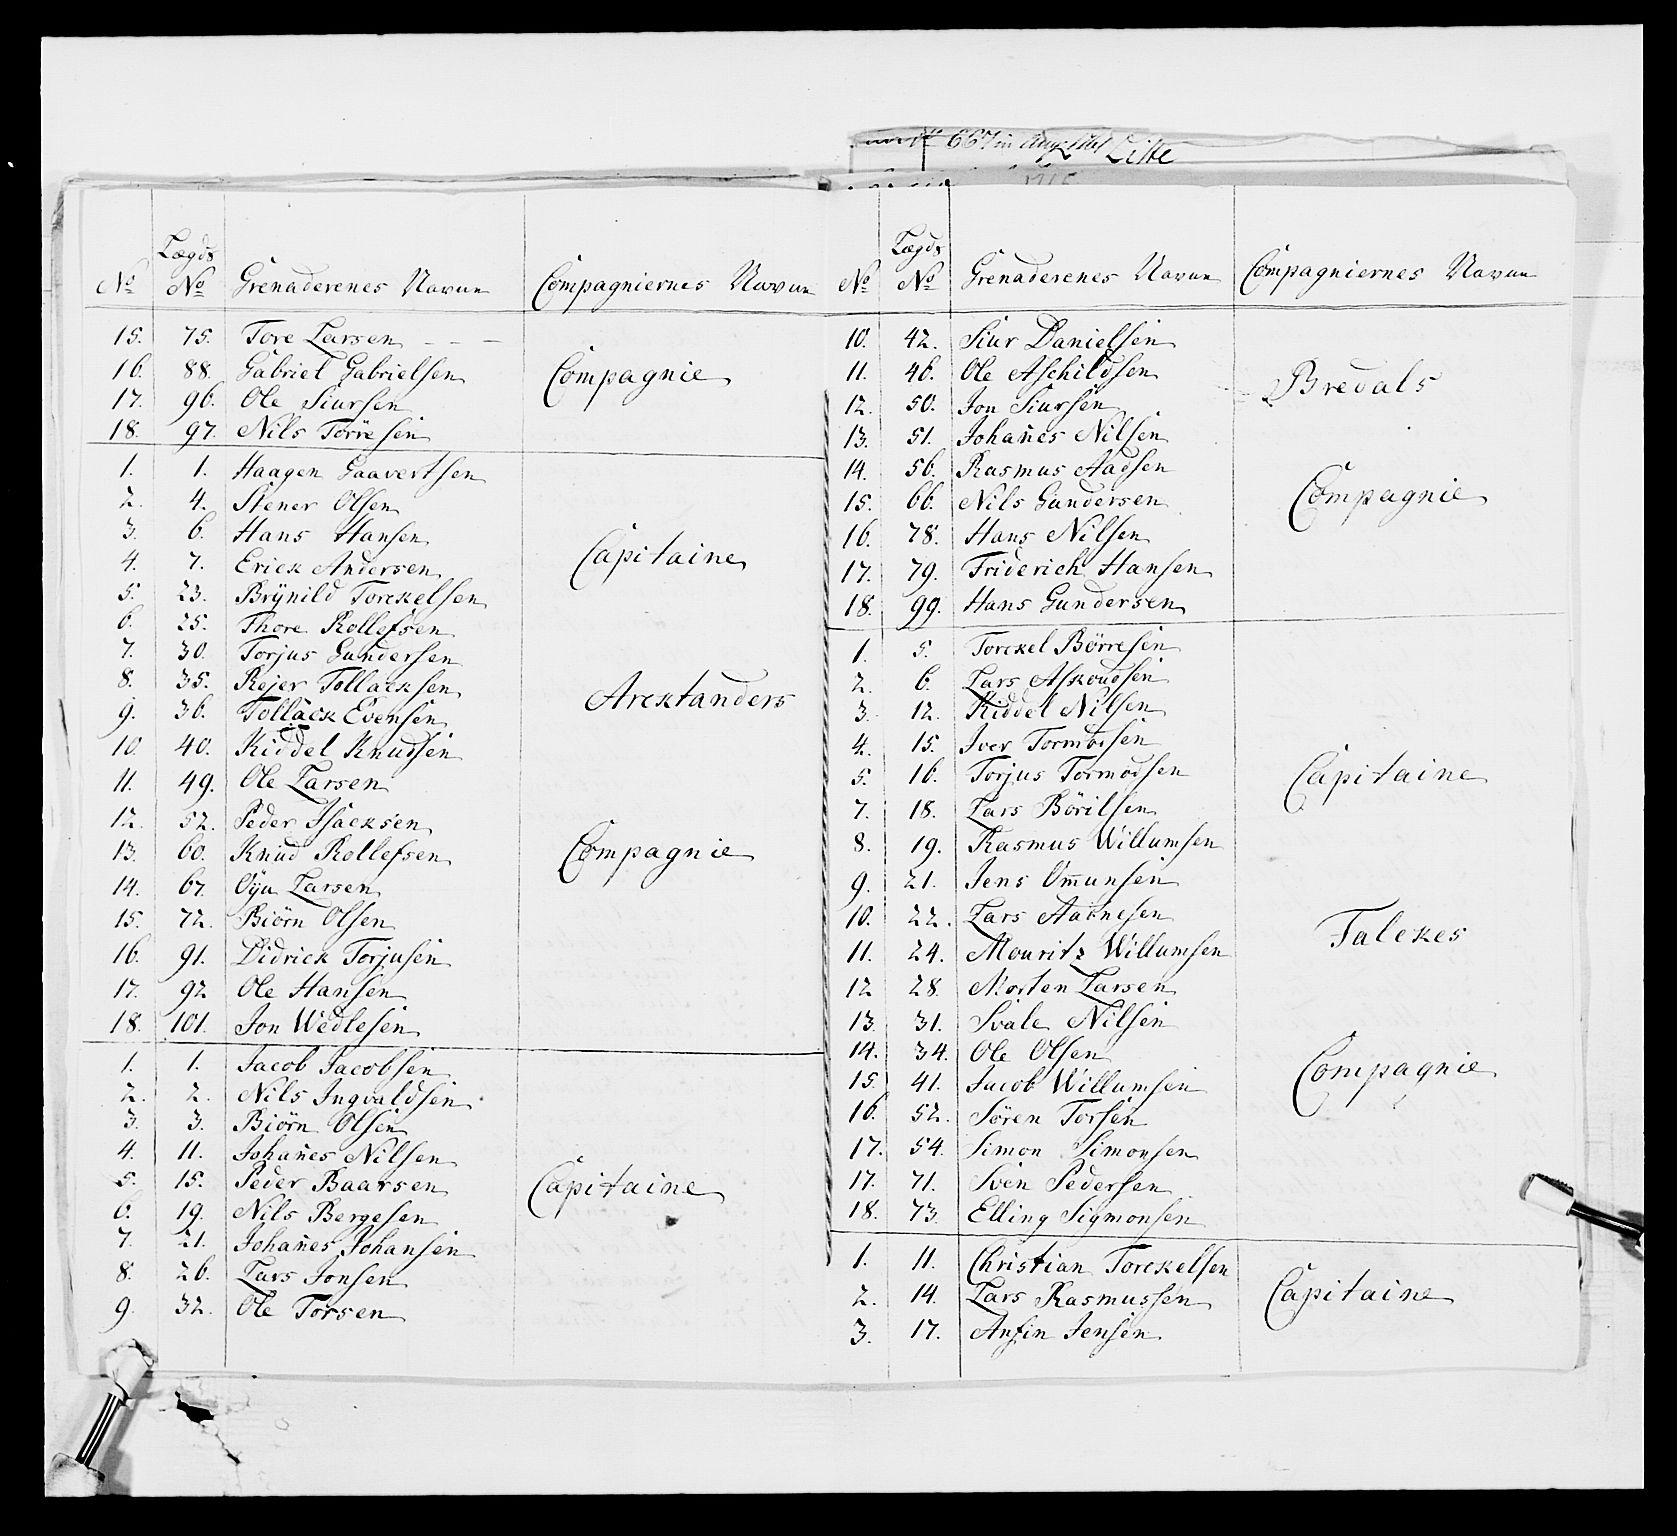 Liste
Lægds
No No Grenaderenes Navne Compagniernes Navne
15. 75. Tore Larsen - - -
16. 88. Gabriel Gabrielsen Compagnie
17. 96. Ole Siursen
18. 97. Nils Törresen
1. 1. Haagen Gaavertsen
2. 4. Stener Olsen
3. 6. Hans Hansen
4. 7. Erick Andersen Capitaine
5. 23. Brÿnild Torckelsen
6. 25. Thore Rollefsen
7. 30. Torjus Gundersen
8. 35. Rejer Tollacksen Arcktanders
9. 36. Tollack Evensen
10 40. Kiddel Knudsen
11. 49. Ole Larsen
12. 52. Peder Isacksen
13. 60. Knud Rollefsen Compagnie
14. 67. Oÿu Larsen
15. 72. Biörn Olsen
16. 91. Didrick Torjusen
17. 92 Ole Hansen
18. 101. Jon Wedlesen
1. 1. Jacob Jacobsen
2. 2. Nils Ingvaldsen
3. 3. Biörn Olsen
4. 11. Johan̄es Nilsen
5. 15. Peder Baarsen Capitaine
6. 19. Nils Bergesen
7. 21. Johan̄es Johansen
8. 26. Lars Jonsen
9. 32. Ole Torsen
Lægds
No No Grenaderenes Navne Compagniernes Navne
10. 42. Siur Danielsen
11. 46. Ole Aschildsen Bredals
12. 50. Jon Siursen
13. 51. Johan̄es Nilsen
14. 56. Rasmus Aadsen
15. 66. Nils Gundersen Compagnie
16. 78. Hans Nilsen
17. 79. Friderich Hansen
18. 99. Hans Gundersen
1. 5. Torckel Börresen
2. 6. Lars Askoudsen
3. 12. Kiddel Nilsen
4. 15. Iver Tormodsen
5. 16. Torjus Tormodsen Capitaine
7. 18. Lars Börilsen
8. 19. Rasmus Willumsen
9. 21. Jens Om̄unsen
10. 22. Lars Aarnesen Falckes
11. 24. Mouritz Willumsen
12 28. Morten Larsen
13. 31. Svale Nilsen
14. 34. Ole Olsen Compagnie
15. 41. Jacob Willumsen
16. 52. Sören Torsen
17. 54. Simon Simonsen
17. 71. Sven Pedersen
18. 73. Elling Sigmonsen
1. 11. Christian Torckelsen
2. 14. Lars Rasmussen Capitaine
3. 17. Anfin Jensen